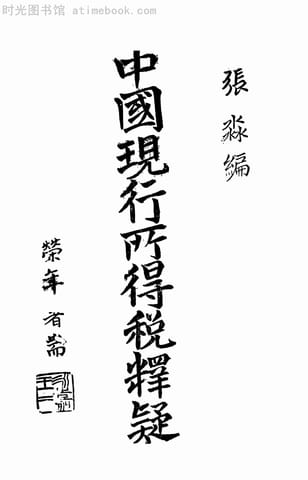 时光图书馆 atimebook.com
張淼編
中國現行所得税釋疑
榮年省耑